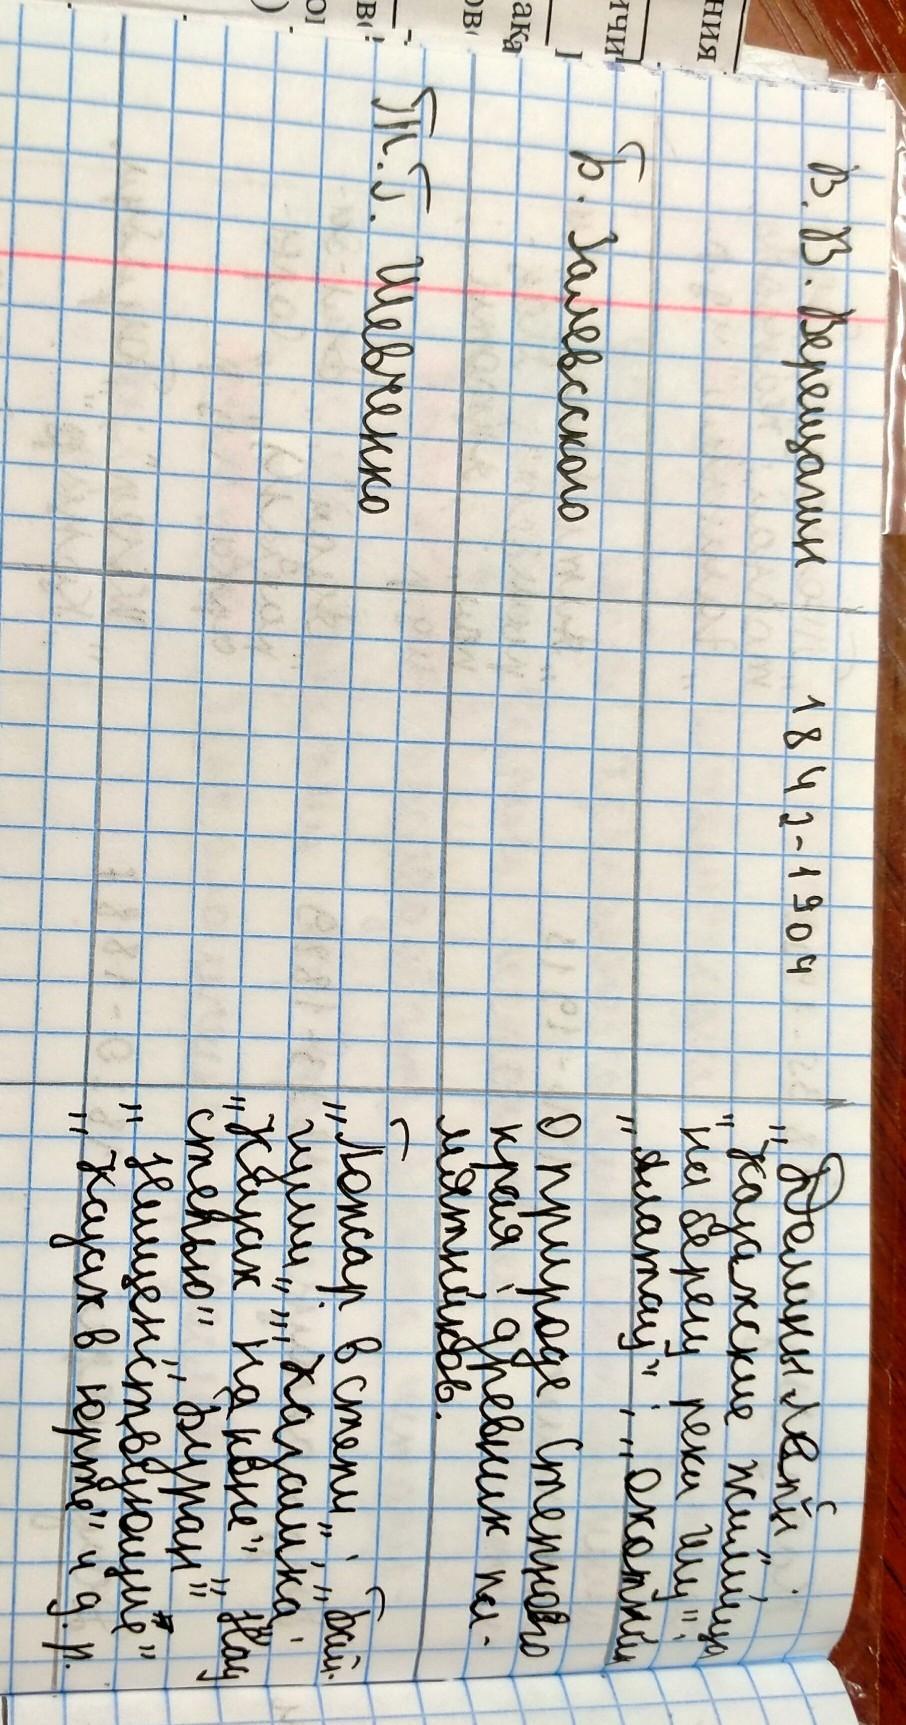 В. В. Верещагин 1842-1904 „Долины
„Казахские жилища
на берегу реки Шу",
„Алатау", „охотник
Б. Залевсского О природе Степного
края, древних па-
мятников.
Т. Г. Шевченко „Пожар в степи", „Бай-
гуши", „Казашка",
„Казах на коне"
степью", „Буран"
„Нищенствующие"
„Казах в юрте" и д. р.